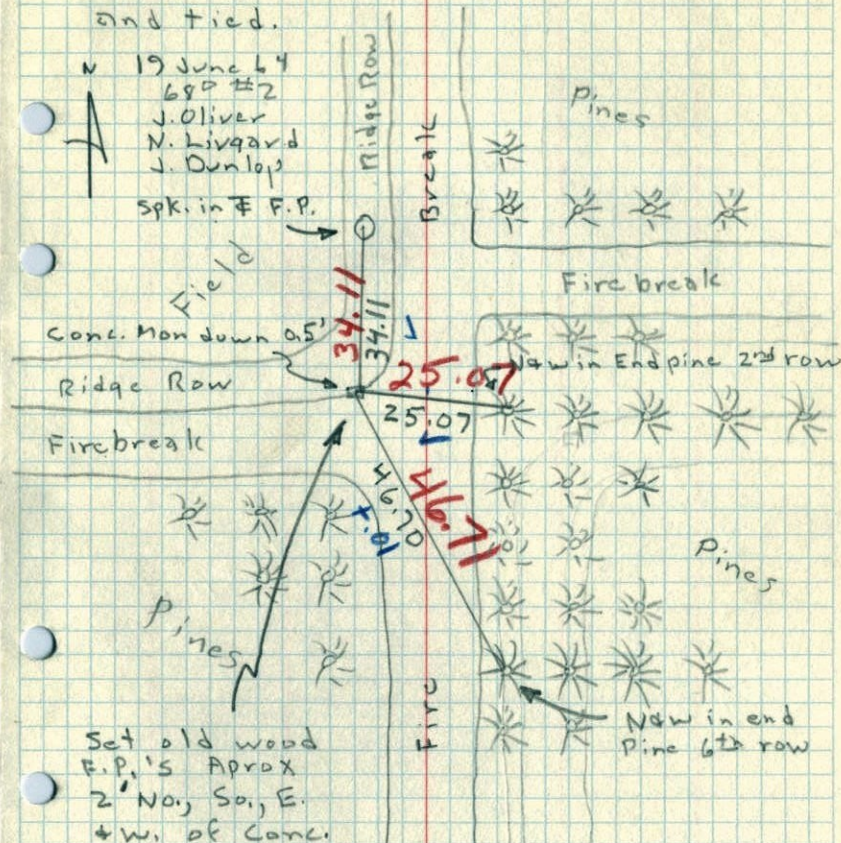 and tied.
N
19 June 64
68° #2
J. Oliver
N. Livgard
J. Dunlop
Spk. in ℄ F.P.
Ridge Row
Break
Pines
Field
Firebreak
34.11
34.11
Conc. Mon down 0.5'
25.07
N&w in End pine 2nd row
Ridge Row
25.07
Firebreak
46.70
46.71
+.01
Pines
Pines
Fire
N&w in end
Pine 6th row
Set old wood
F.P.'s Aprox
2' No., So., E.
& W. of Conc.